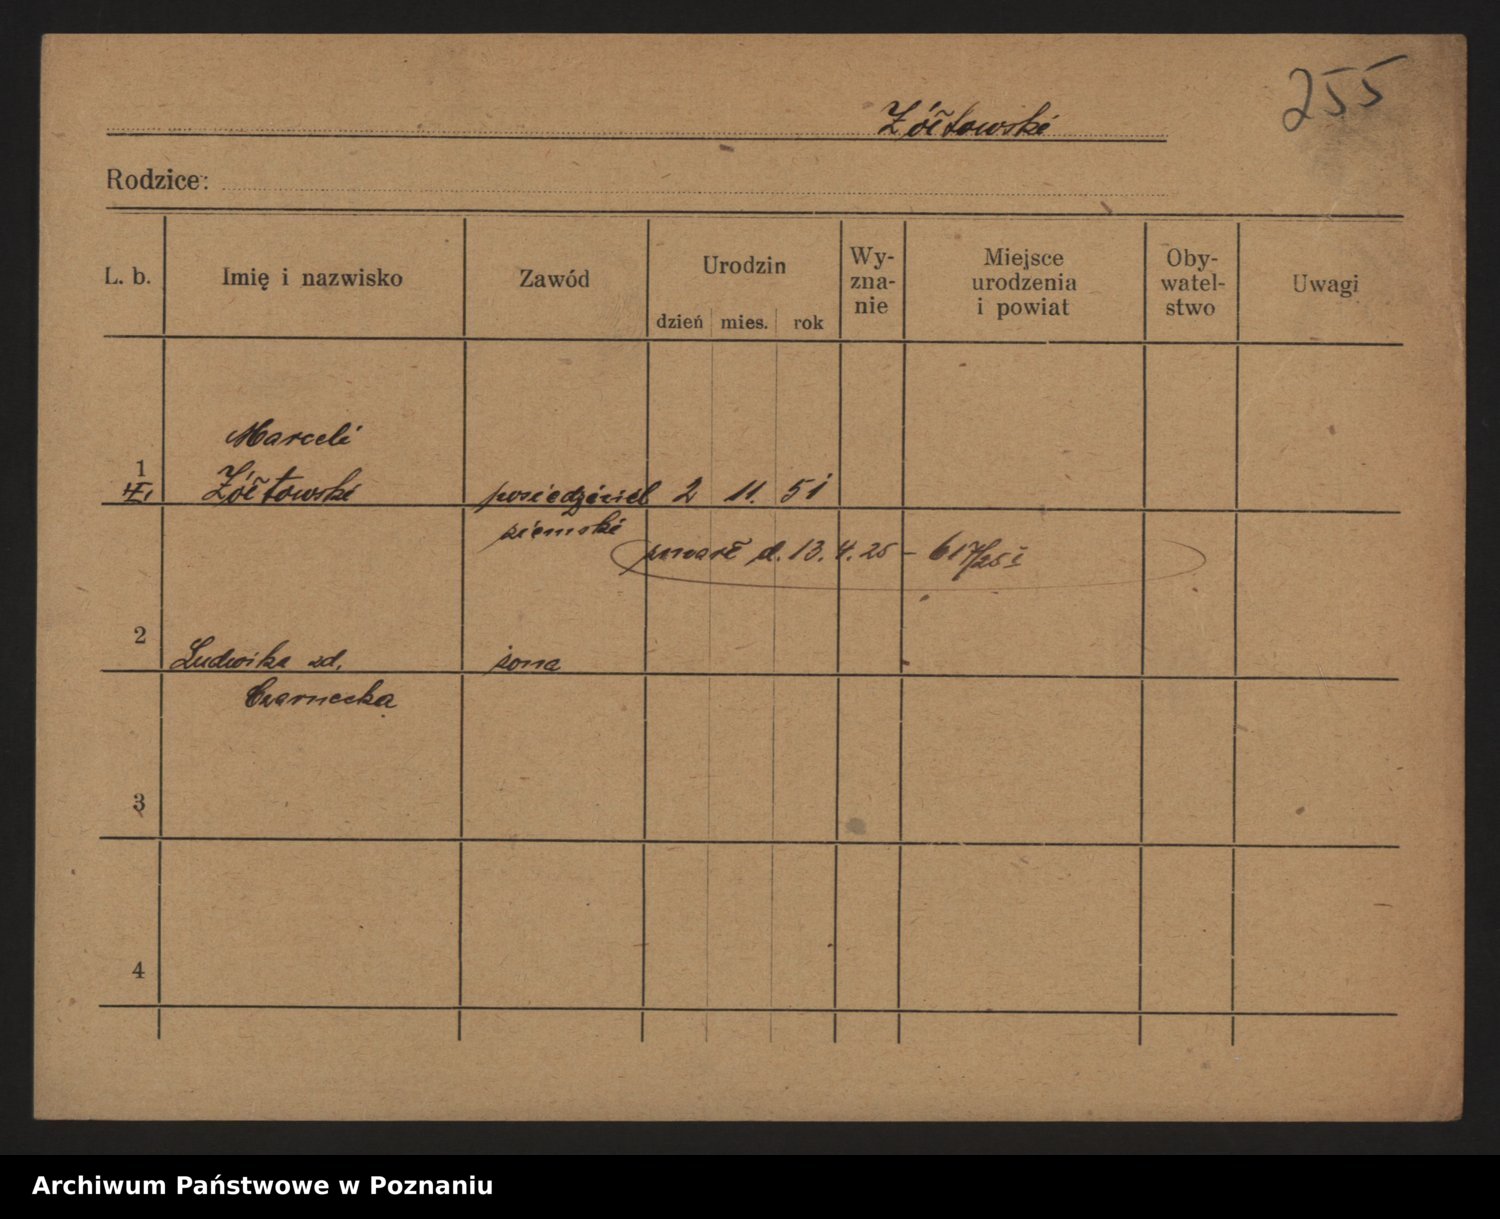 255
Żółtowski
Rodzice:
L. b.
Imię i nazwisko
Zawód
Urodzin
dzień mies. rok
Wy-
zna-
nie
Miejsce
urodzenia
i powiat
Oby-
watel-
stwo
Uwagi
Marceli
1
Żółtowski posiedziciel 2 11. 51
ziemski
zmarł d. 13.4.25 – 617/25 I
2
Ludwika zd. żona
Czarnecka
3
4
Archiwum Państwowe w Poznaniu